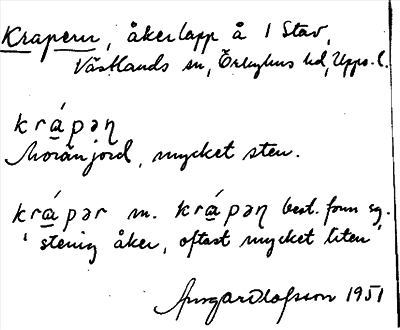 Krapern, åkerlapp å 1 Stav,
Västlands sn, Örbyhus hd, Upps. l.
krápəɳ
Moränjord, mycket sten.
krápər m. krápəɳ best. form sg.
'stenig åker, oftast mycket liten'
Ansgar Olofsson 1951